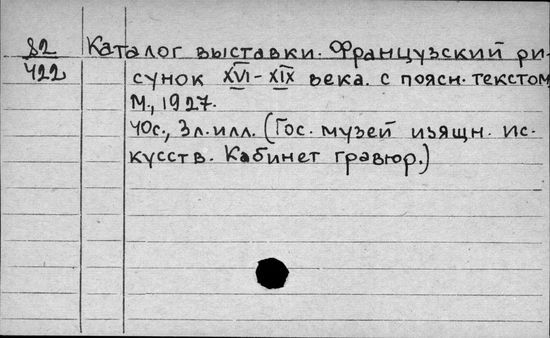 82
422
Каталог выставки. Французский ри-
сунок XVI-XIX века. с поясн. текстом
М., 1927.
40с., 3л.илл. (Гос. музей изящн. ис-
кусств. Кабинет гравюр.)